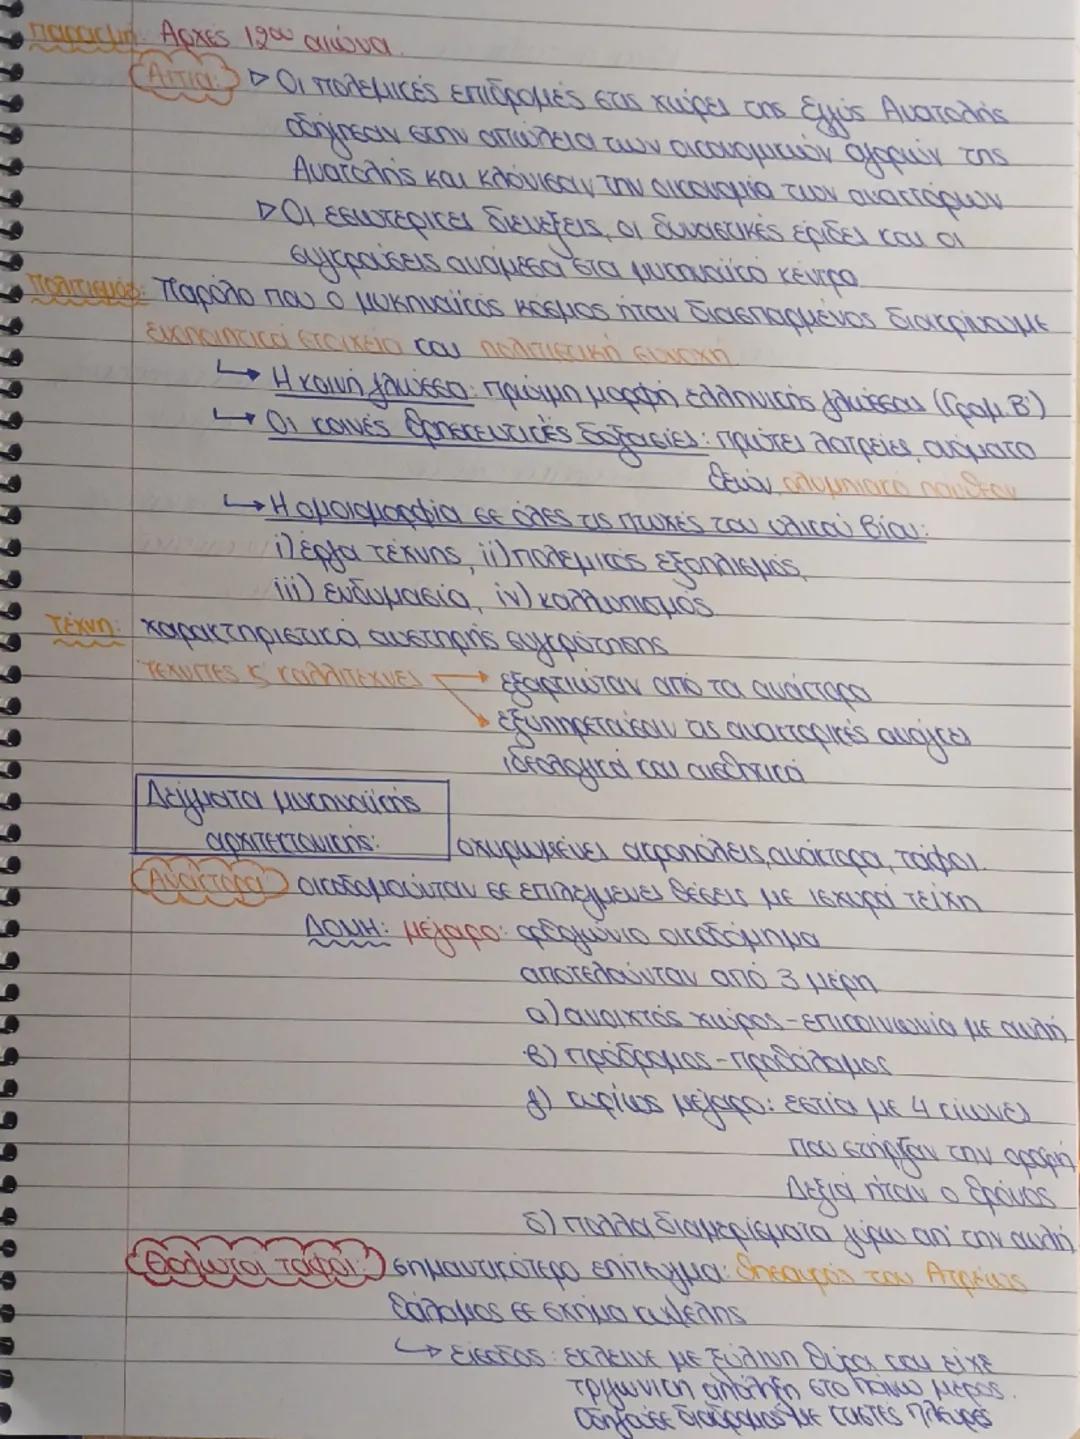 Παρακμή: Αρχές 12ου αιώνα.
Αίτια: ▷ Οι πολεμικές επιδρομές στις χώρες της Εγγύς Ανατολής
οδήγησαν στην απώλεια των οικονομικών αγορών της
Ανατολής και κλόνισαν την οικονομία των ανακτόρων
▷ Οι εσωτερικές διενέξεις, οι δυναστικές έριδες και οι
συγκρούσεις ανάμεσα στα μυκηναϊκά κέντρα
Πολιτισμός: Παρόλο που ο μυκηναϊκός κόσμος ήταν διασπαρμένος διακρίνουμε
ενοποιητικά στοιχεία και πολιτιστική συνοχή
↳ Η κοινή γλώσσα: πρώιμη μορφή ελληνικής γλώσσας (Γραμ. Β')
↳ Οι κοινές θρησκευτικές δοξασίες: πρώτες λατρείες, ονόματα
θεών, ολυμπιακό πάνθεον
↳ Η ομοιομορφία σε όλες τις πτυχές του υλικού βίου:
i) έργα τέχνης, ii) πολεμικός εξοπλισμός,
iii) ενδυμασία, iv) καλλωπισμός
Τέχνη: χαρακτηριστικά αυστηρής συγκρότησης
τεχνίτες ς καλλιτέχνες → εξαρτιώταν από τα ανάκτορα
→ εξυπηρετούσαν τις ανακτορικές ανάγκες
ιδεολογικά και αισθητικά
Δείγματα μυκηναϊκής
αρχιτεκτονικής: οχυρωμένες ακροπόλεις, ανάκτορα, τάφοι.
Ανάκτορα: οικοδομούνταν σε επιλεγμένες θέσεις με ισχυρά τείχη
ΔΟΜΗ: μέγαρο: ορθογώνιο οικοδόμημα
αποτελούνταν από 3 μέρη
α) ανοιχτός χώρος - επικοινωνία με αυλή
β) πρόδρομος - προθάλαμος
γ) κυρίως μέγαρο: εστία με 4 κίονες
που στήριζαν την οροφή
Δεξιά ήταν ο θρόνος
δ) πολλά διαμερίσματα γύρω απ' την αυλή
Θολωτοί τάφοι: σημαντικότερο επίτευγμα: θησαυρός του Ατρέως
θάλαμος σε σχήμα κυψέλης
↳ είσοδος: έκλεινε με ξύλινη θύρα που είχε
τριγωνική απόληξη στο πάνω μέρος.
Οδηγούσε διάδρομος με κτιστές πλευρές